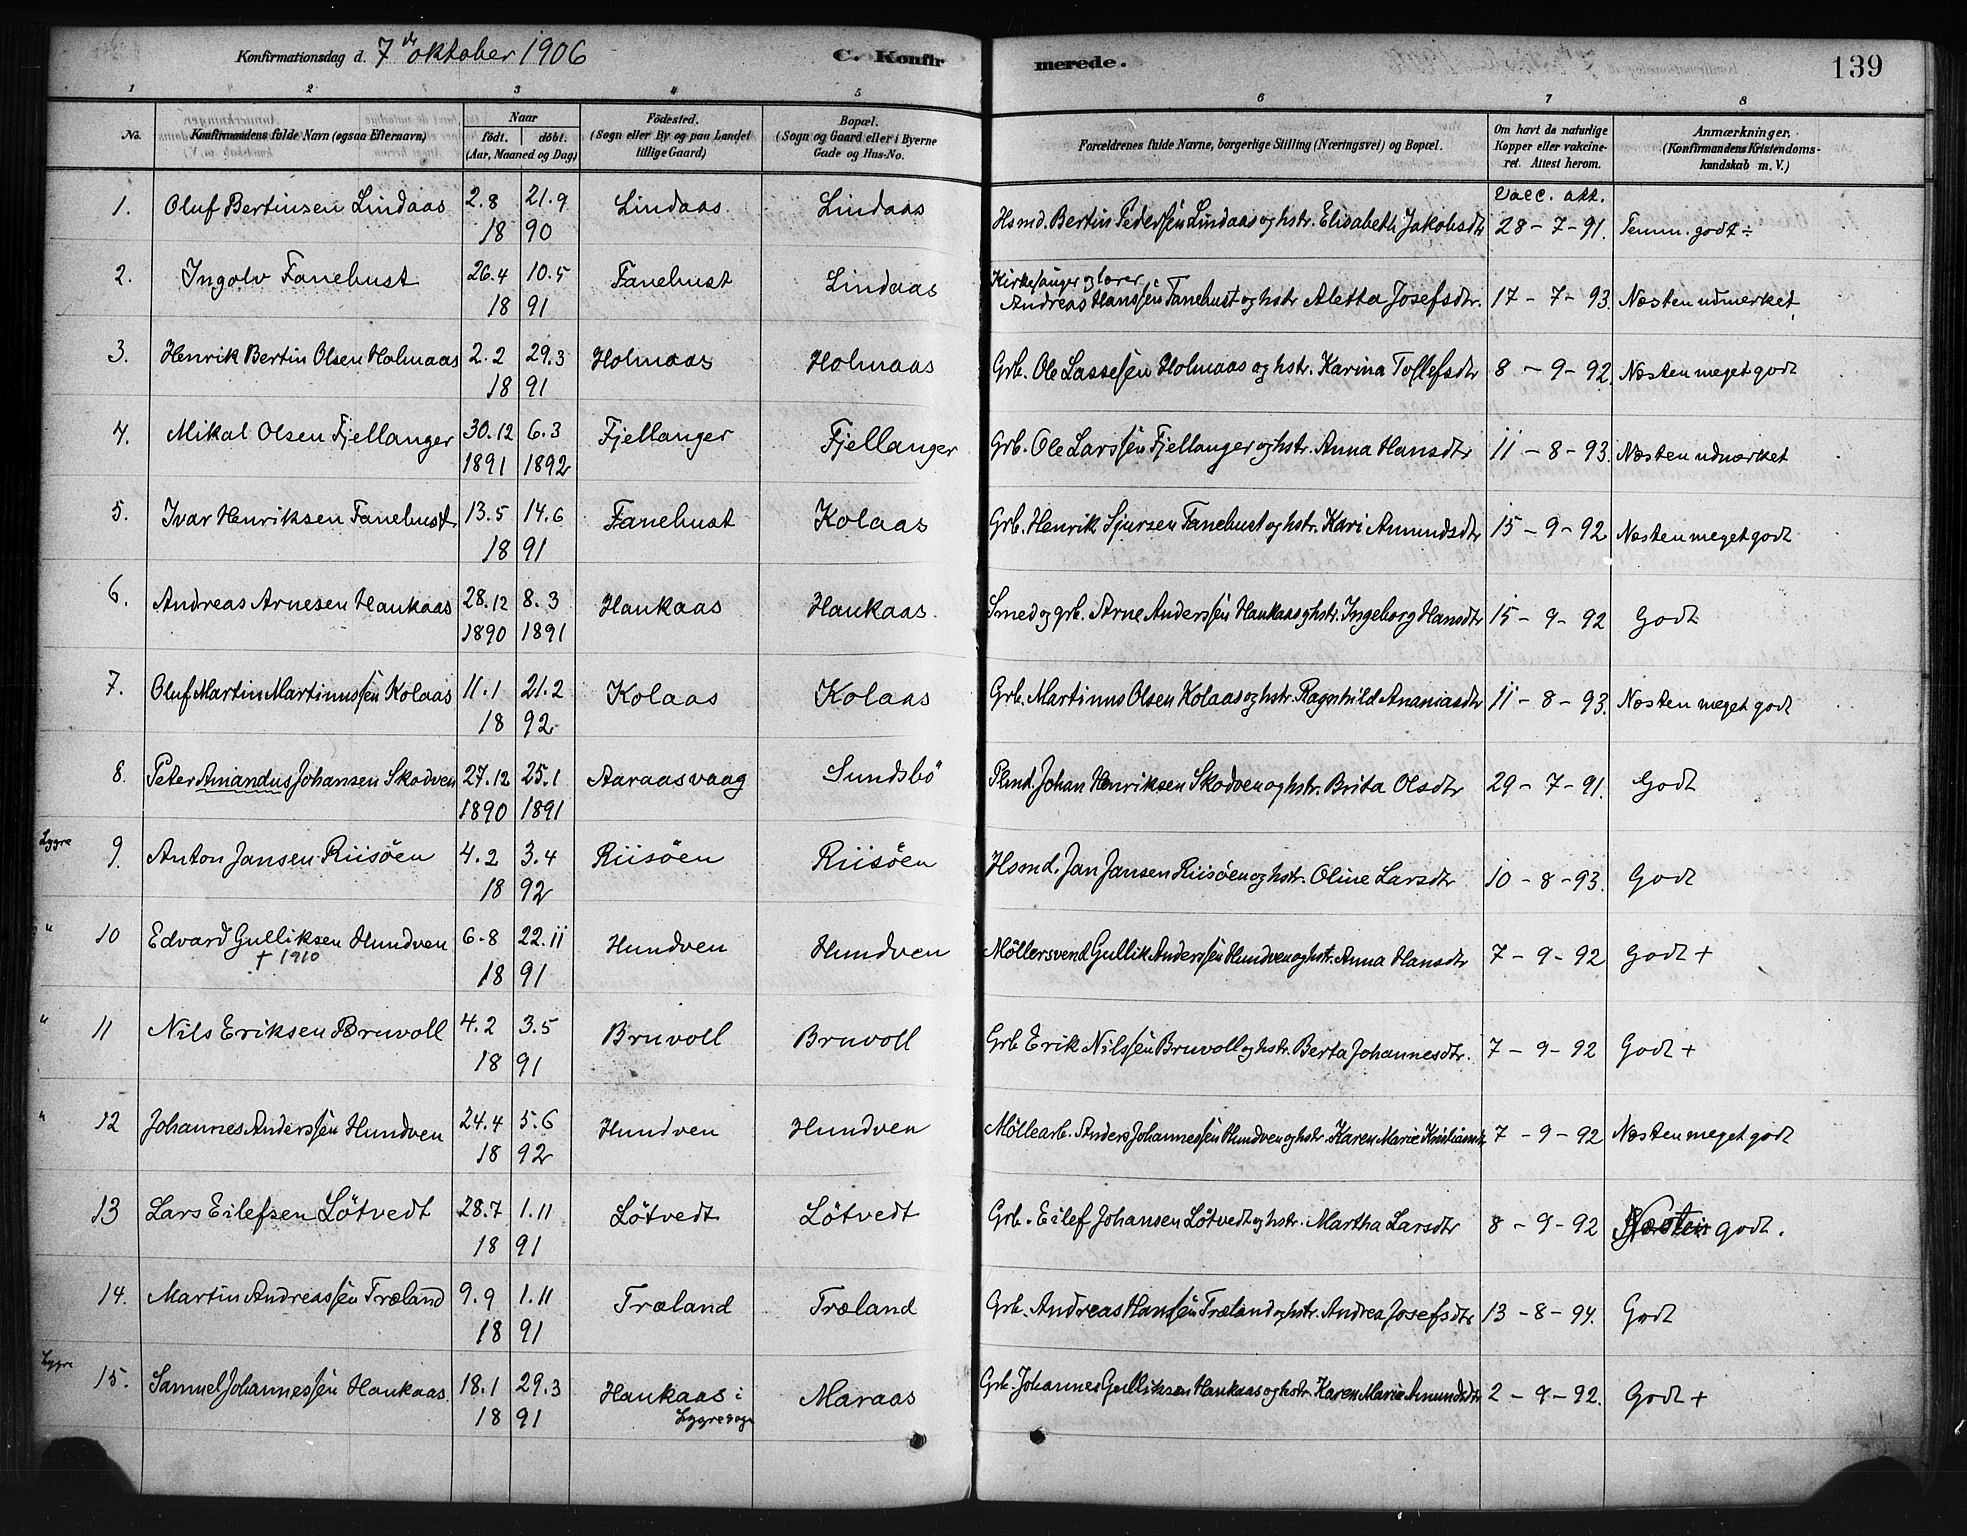 Konfirmationsdag d. 7de oktober 1906 C. Konfirmerede. 139
1 2 3 4 5 6 7 8
No. Konfirmandens fulde Navn (ogsaa Efternavn) Naar födt. döbt. (Aar, Maaned og Dag) Födested. (Sogn eller By og paa Landet tillige Gaard) Bopæl. (Sogn og Gaard eller i Byerne Gade og Hus-No. Forældrenes fulde Navne, borgerlige Stilling (Næringsvei) og Bopæl. Om havt de naturlige Kopper eller vakcineret. Attest herom. Anmærkninger, (Konfirmandens Kristendomskundskab m. V.)
Vacc. att.
1. Oluf Bertinsen Lindaas 2.8 21.9 Lindaas Lindaas Hsmd. Bertin Pederssen Lindaas og hstr. Elisabeth Jakobsdtr 28-7-91. Temm. godt ÷
18 90
2. Ingolv Fanebust 26.4 10.5 Fanebust Lindaas Kirkesanger og lærer
Andreas Hanssen Fanebust og hstr Aletta Josefsdtr. 17-7-93. Næsten udmerket
18 91
3. Henrik Bertin Olsen Holmaas 2.2 29.3 Holmaas Holmaas Grb. Ole Lassesen Holmaas og hstr. Karina Tollefsdtr 8-9-92. Næsten meget godt
18 91
4. Mikal Olsen Fjellanger 30.12 6.3 Fjellanger Fjellanger Grb. Ole Larssen Fjellanger og hstr. Anna Hansdtr 11-8-93. Næsten udmærket
1891 1892
5. Ivar Henriksen Fanebust 13.5 14.6 Fanebust Kolaas Grb. Henrik Sjursen Fanebust og hstr. Kari Amundsdtr 15-9-92 Næsten meget godt
18 91
6. Andreas Arnesen Haukaas 28.12 8.3 Haukaas Haukaas Smed og grb. Arne Anderssen Haukaas og hstr. Ingeborg Hansdtr 15-9-92 Godt
1890 1891
7. Oluf Martin Martinussen Kolaas 11.1 21.2 Kolaas Kolaas Grb. Martinus Olsen Kolaas og hstr. Ragnhild Ananiasdtr 11-8-93. Næsten meget godt
18 92
8. Peter Amandus Johansen Skodven 27.12 25.1 Aaraasvaag Sundsbö Plmd. Johan Henriksen Skodven og hstr. Brita Olsdtr 29-7-91. Godt
1890 1891
Lygre 9. Anton Jansen Riisöen 4.2 3.4 Riisöen Riisöen Hsmd. Jan Jansen Riisöen og hstr. Oline Larsdtr 10-8-93. Godt
18 92
" 10 Edvard Gulliksen Hundven 6.8 22.11 Hundven Hundven Möllersvend Gullik Anderssen Hundven og hstr. Anna Hansdtr 7-9-92 Godt +
† 1910
18 91
" 11 Nils Eriksen Bruvoll 4.2 3.5 Bruvoll Bruvoll Grb Erik Nilssen Bruvoll og hstr. Berta Johannesdtr. 7-9-92 Godt +
18 91
" 12 Johannes Anderssen Hundven 24.4 5.6 Hundven Hundven Möllearb. Anders Johannessen Hundven og hstr. Karen Marie Kristiansdtr 7-9-92 Næsten meget godt
18 92
13 Lars Eilefsen Lötvedt 28.7 1.11 Lötvedt Lötvedt Grb. Eilef Johansen Lötvedt og hstr. Martha Larsdtr 8-9-92 Næsten godt.
18 91
14. Martin Andreassen Træland 9.9 1.11 Træland Træland Grb. Andreas Hanssen Træland og hstr. Andrea Josefsdtr 13-8-94. Godt
18 91
Lygre 15. Samuel Johannessen Haukaas 18.1 29.3 Haukaas i Maraas Grb. Johannes Gulliksen Haukaas og hstr. Karen Marie Amundsdtr 2-9-92. Godt +
18 91 Lygre sogn